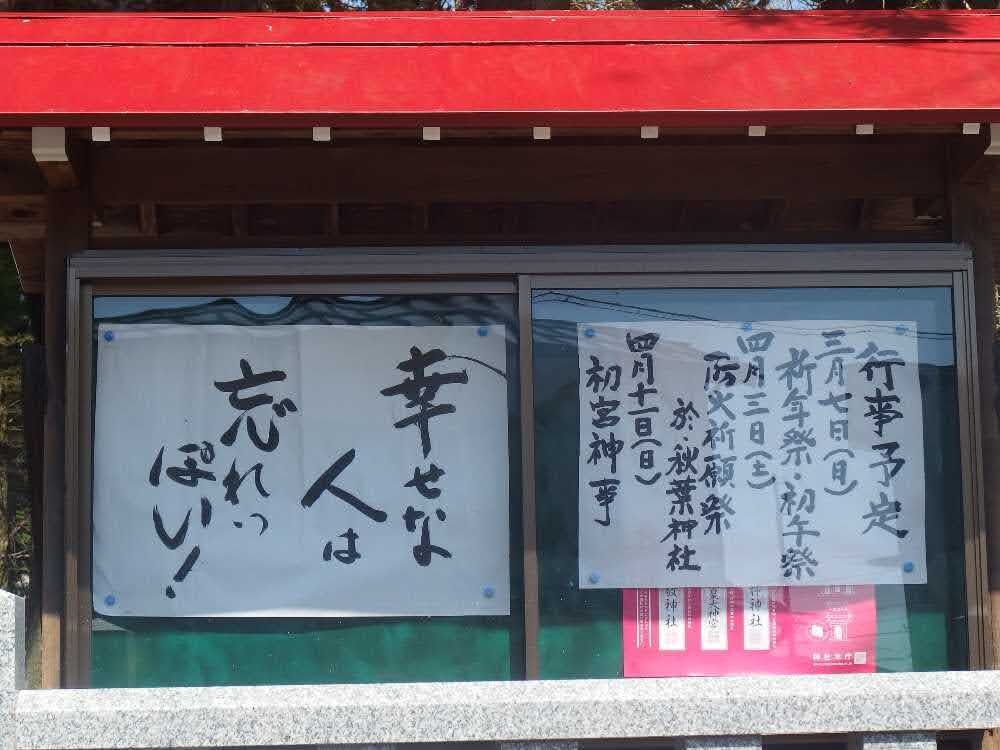 行事予定
三月七日(日)
祈年祭・初午祭
四月三日(土)
防火祈願祭
於・秋葉神社
四月十一日(日)
初宮神事
幸せな
人は
忘れっ
ぽい!
神社
皇大神宮
神社
神社本庁